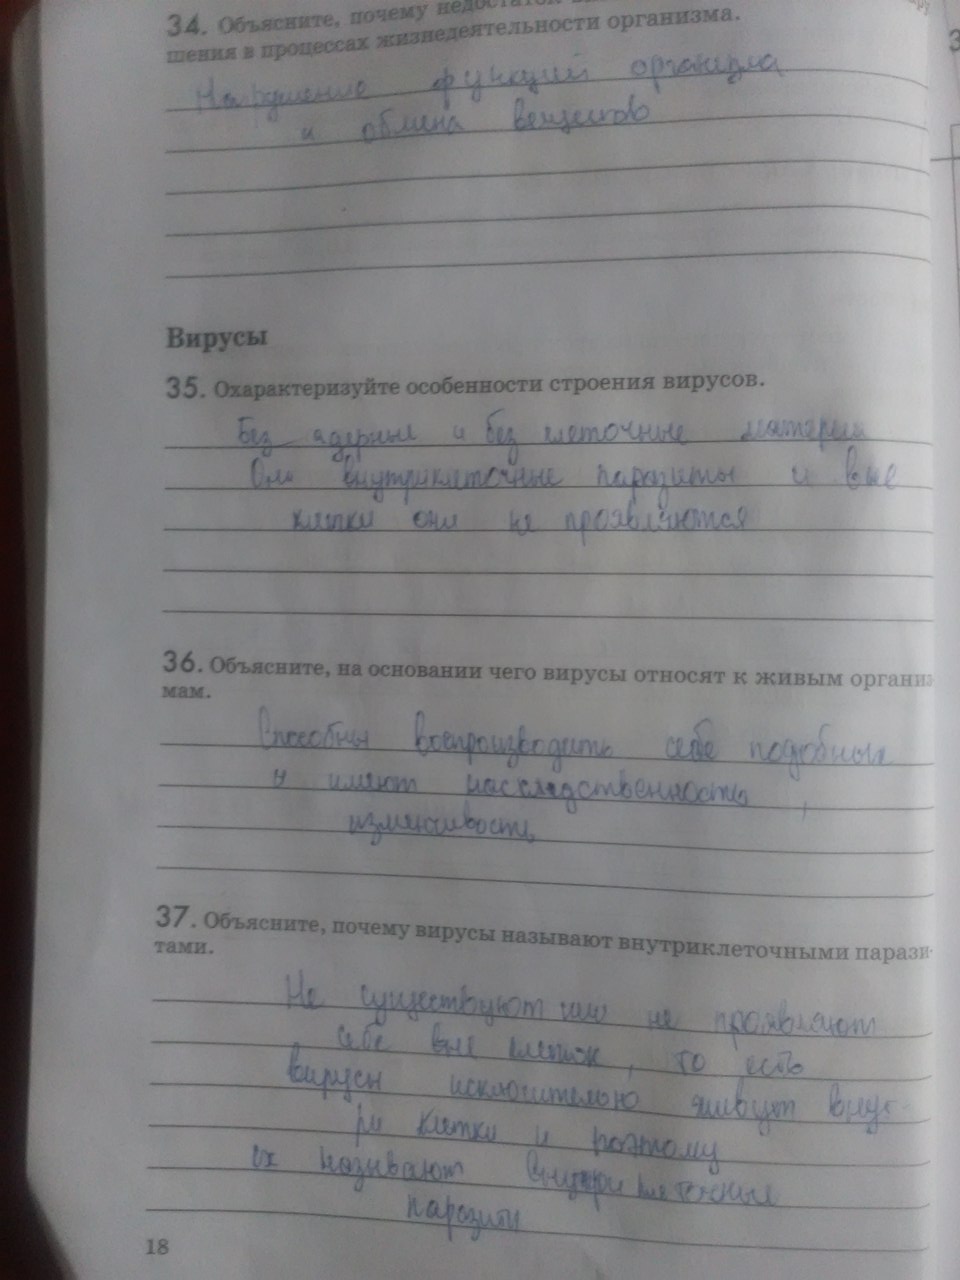 34. Объясните, почему недостаток
шения в процессах жизнедеятельности организма.
Нарушение функций организма
и обмена веществ
Вирусы
35. Охарактеризуйте особенности строения вирусов.
Без ядерные и без клеточные материи
Они внутриклеточные паразиты и вне
клетки они не проявляются
36. Объясните, на основании чего вирусы относят к живым организ
мам.
Способны воспроизводить себе подобных
и имеют насследственность,
изменчивость
37. Объясните, почему вирусы называют внутриклеточными парази-
тами.
Не существуют или не проявляют
себе вне клеток, то есть
вирусы исключительно живут внут-
ри клетки и поэтому
их называют внутриклеточные
паразиты
18